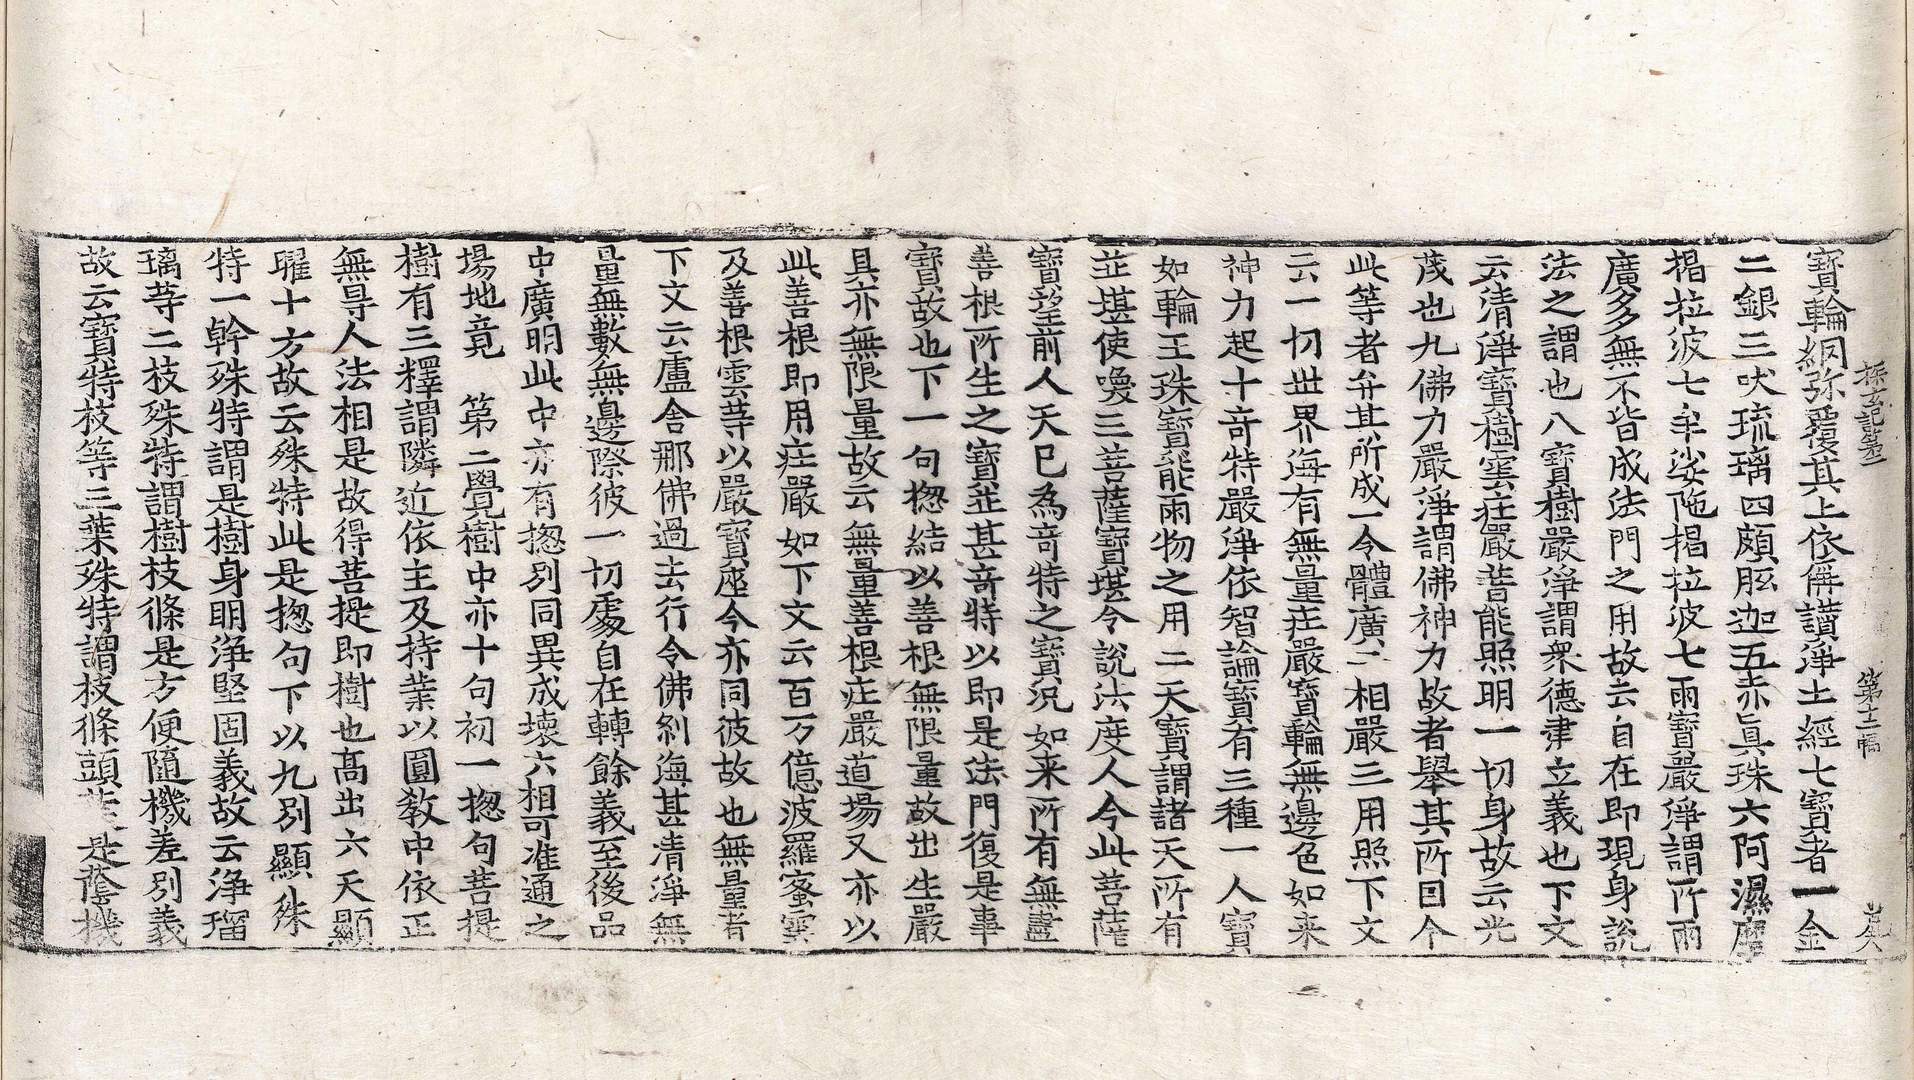 探玄記第二 第十二幅 
寶輪網弥覆其上依佛讃淨土經七寶者一金
二銀三吠琉璃四頗胝迦五赤眞珠六阿濕摩
揭拉波七牟娑陁揭拉波七雨寶嚴淨謂所雨
廣多無不皆成法門之用故云自在即現身說
法之謂也八寶樹嚴淨謂衆德聿立義也下文
云清淨寶樹雲庄嚴菩能照明一切身故云光
茂也九佛力嚴淨謂佛神力故者舉其所因今
此等者弁其所成一令體廣二相嚴三用照下文
云一切世界海有無量庄嚴寶輪無邊色如来
神力起十竒特嚴淨依智論寶有三種一人寶
如輪王珠寶能雨物之用二天寶謂諸天所有
並堪使喚三菩薩寶堪令說法度人今此菩薩
寶望前人天已為竒特之寶況如来所有無盡
善根所生之寶並甚竒特以即是法門復是事
寶故也下一句揔結以善根無限量故出生嚴
具亦無限量故云無量善根庄嚴道場又亦以
此善根即用庄嚴如下文云百万億波羅蜜雲
及善根雲䓁以嚴寶座今亦同彼故也無量者
下文云盧舍那佛過去行令佛刹海甚清淨無
量無數無邊際彼一切處自在轉餘義至後品
中廣明此中亦有揔別同異成壊六相可准通之
場地竟 第二覺樹中亦十句初一揔句菩提
樹有三釋謂隣近依主及持業以圓教中依正
無㝵人法相是故得菩提即樹也高出六天顯
曜十方故云殊特此是揔句下以九別顯殊
特一幹殊特謂是樹身明淨堅固義故云淨瑠
璃䓁二枝殊特謂樹枝條是方便隨機差別義
故云寶特枝等三葉殊特謂枝條頭葉是蔭機